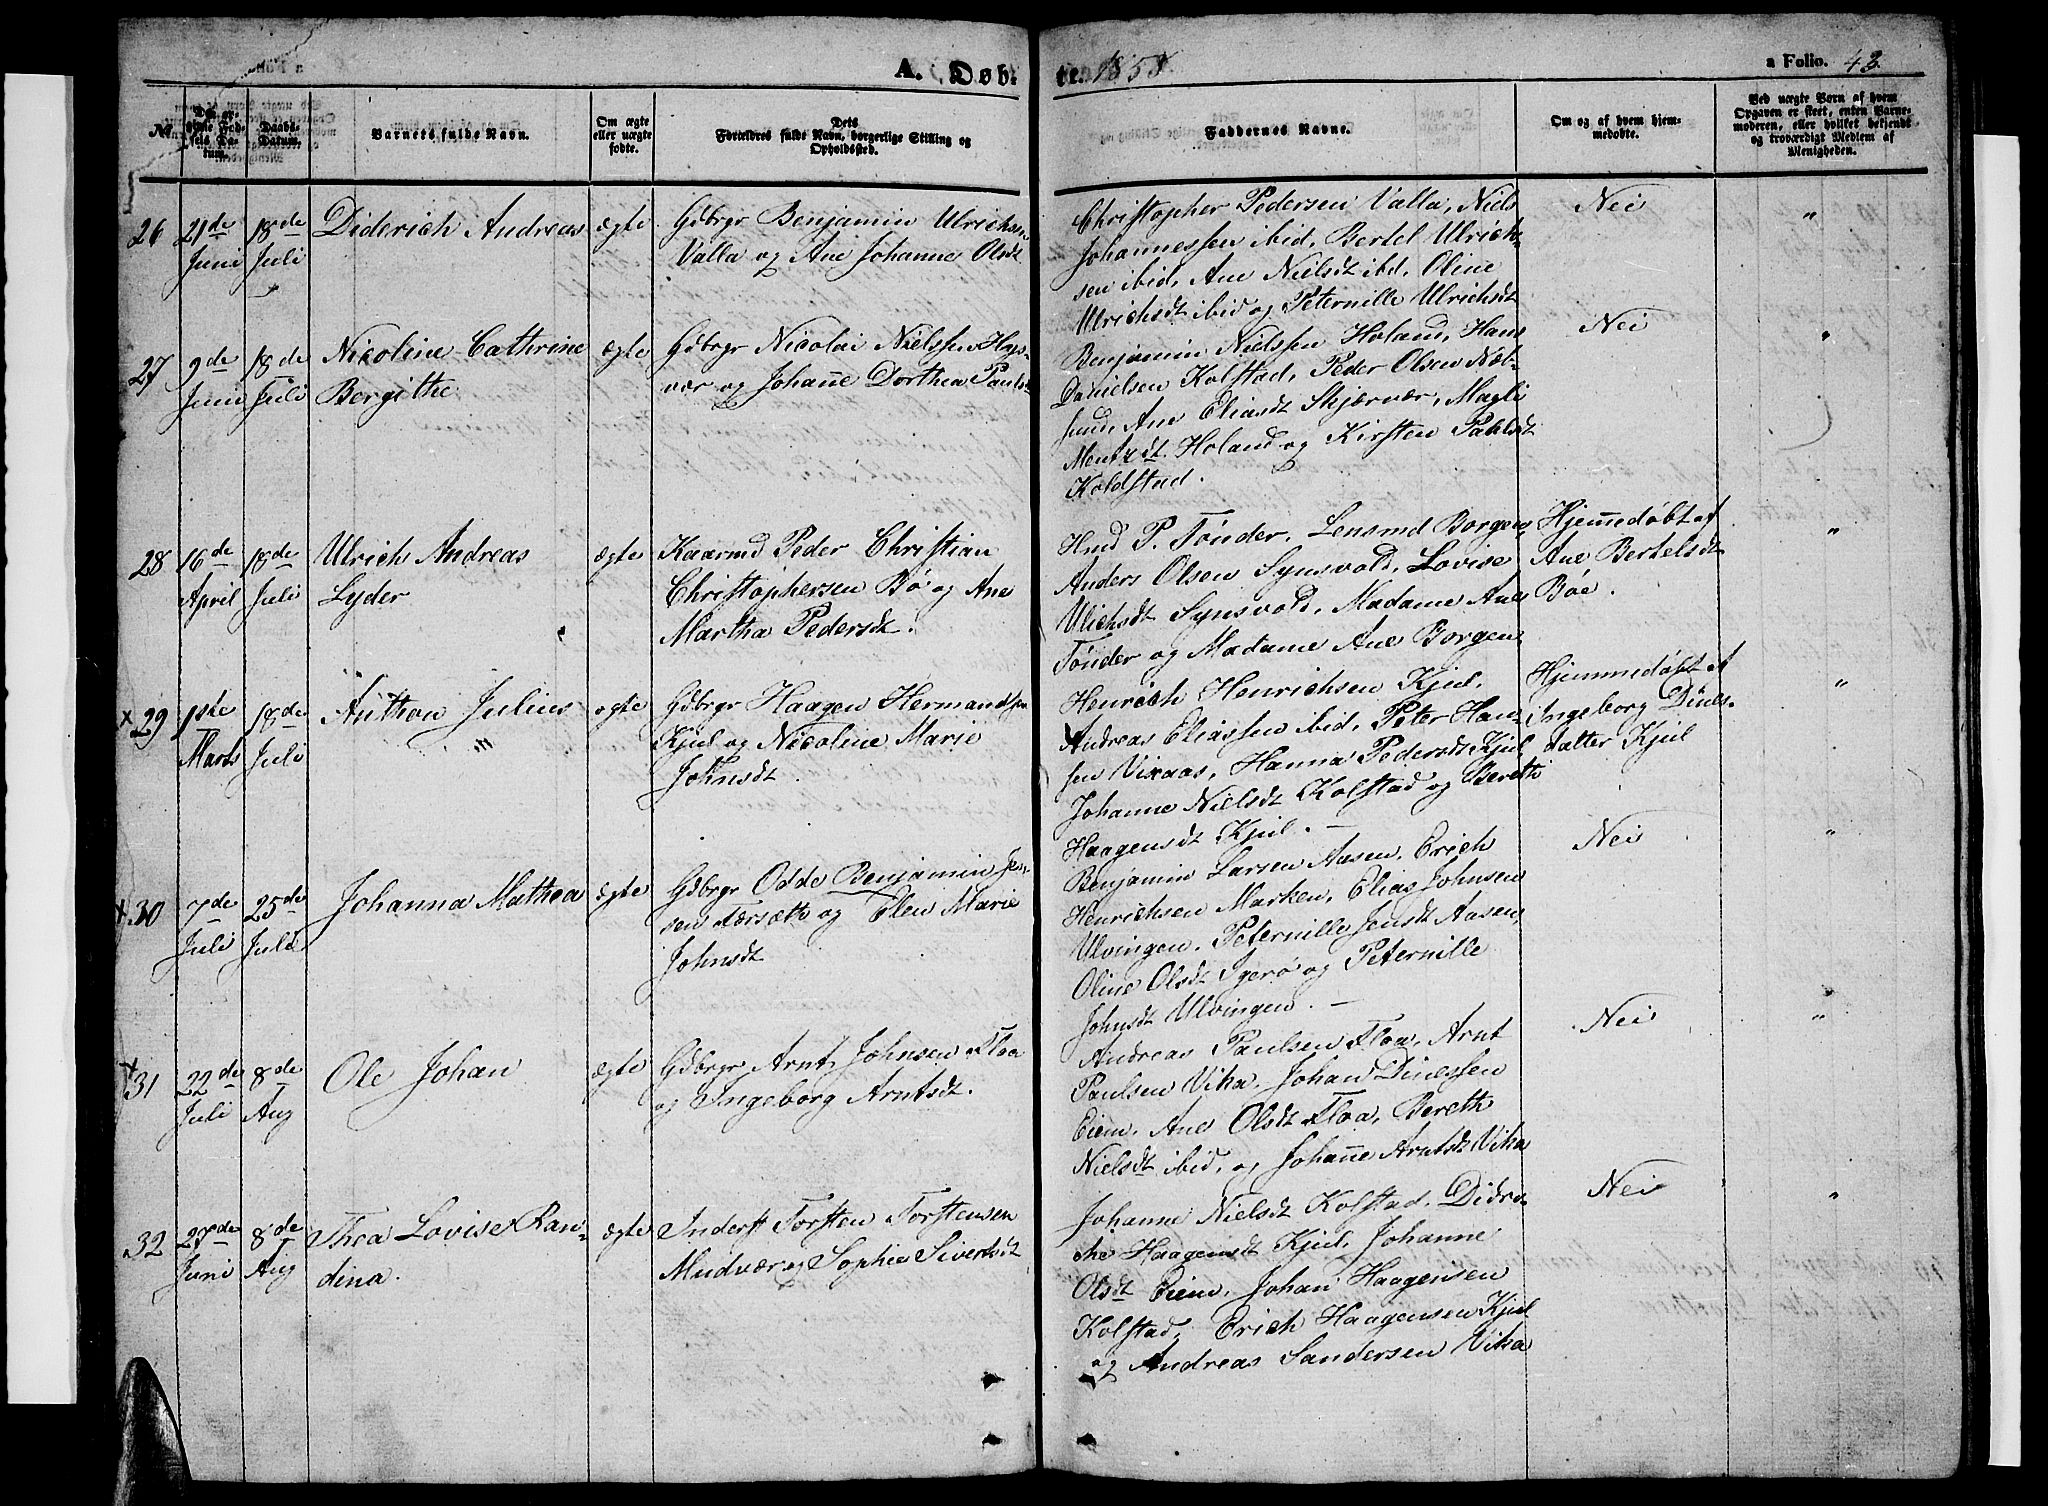 A. Døb- te. 1858
a Folio. 43
No.
Barnets fulde Navn.
Daabs-Datum.
Om ægte eller uægte fødte.
Dets Forældres fulde Navn, borgerlige Stilling og Opholdssted.
Faddernes Navne.
Om og af hvem hjemmedøbte.
Ved uægte Børn af hvem Opgaven er skeet, enten Barnemoderen, eller hvilket bekjendt og troværdigt Medlem af Menigheden.
26 21de Juni 18de Juli Diderich Andreas ægte Gdbrgr Benjamin Ulrichsen
Valla og Ane Johanne Olsdt
Christopher Pedersen Valla, Niels
Johannessen ibid, Bertel Ulrich-
sen ibid, Ane Nielsdt ibd, Oline
Ulrichsdt ibid og Peternille Ulrichsdt
Nei "
27 9de Juni 18de Juli Nicoline Cathrine
Bergithe
ægte Gdbrgr Nicolai Nielssen Hys-
vær og Johanne Dorthea Paulsdt
Benjamin Nielssen Holand, Hans
Danielsen Kolstad, Peder Olsen Næt-
sund, Ane Eliasdt Skjærvær, Magli
Mentzdt Holand og Kirsten Pahlsdt
Koldstad.
Nei "
28 16de April 18de Juli Ulrich Andreas
Lyder
ægte Kaarmd Peder Christian
Christophersen Bø og Ane
Martha Pedersdt.
Hmd P. Tønder, Lensmd Borgen,
Anders Olsen Synsvold, Lovise
Ulichsdt Synsvold, Madame Anes
Tønder og Madame Ane Borgen
Hjemmedøbt af
Ane Bertelsdt
Bøe.
"
x 29 1ste Marts 18de Juli Anthon Julius
ægte Gdbrgr Haagen Hermandsen
Kjul og Nicoline Marie
Johnsdt
Henrich Henrichsen Kjul,
Andreas Eliassen ibid, Peter Han-
sen Vixaas, Hanna Pedersdt Kjul
Johanne Nielsdt Kolstad og Bereth
Haagensdt Kjul. –
Hjemmedøbt af
Ingeborg Dines-
datter Kjul
"
x 30 7de Juli 25de Juli Johanna Mathea
ægte Gdbrgr Odde Benjamin Jen-
sen Færsæth og Elen Marie
Johnsdt
Benjamin Larsen Aasen, Erich
Henrichsen Marken, Elias Johnsen
Ulvingen, Peternille Jensdt Aasen,
Oline Olsdt Igerø og Peternille
Johnsdt Ulvingen. –
Nei "
x 31 22de Juli 8de Aug Ole Johan
ægte Gdbrgr Arnt Johnsen Floa
og Ingeborg Arntsdt.
Andreas Paulsen Floa, Arnt
Paulsen Vika, Johan Dinessen
Eiem, Ane Olsdt Floa, Bereth
Nielsdt ibid, og Johanne Arntsdt Vika
Nei "
32 27de Juni 8de Aug Thea Lovise Ran-
dina.
ægte Inderst Torsten Torstensen
Mudvær og Sophie Sivertsdt
Johanne Nielsdt Kolstad, Didri-
che Haagensdt Kjul, Johanne
Olsdt Eiem, Johan Haagensen
Kolstad, Erich Haagensen Kjul
og Andreas Sandersen Vika
Nei "